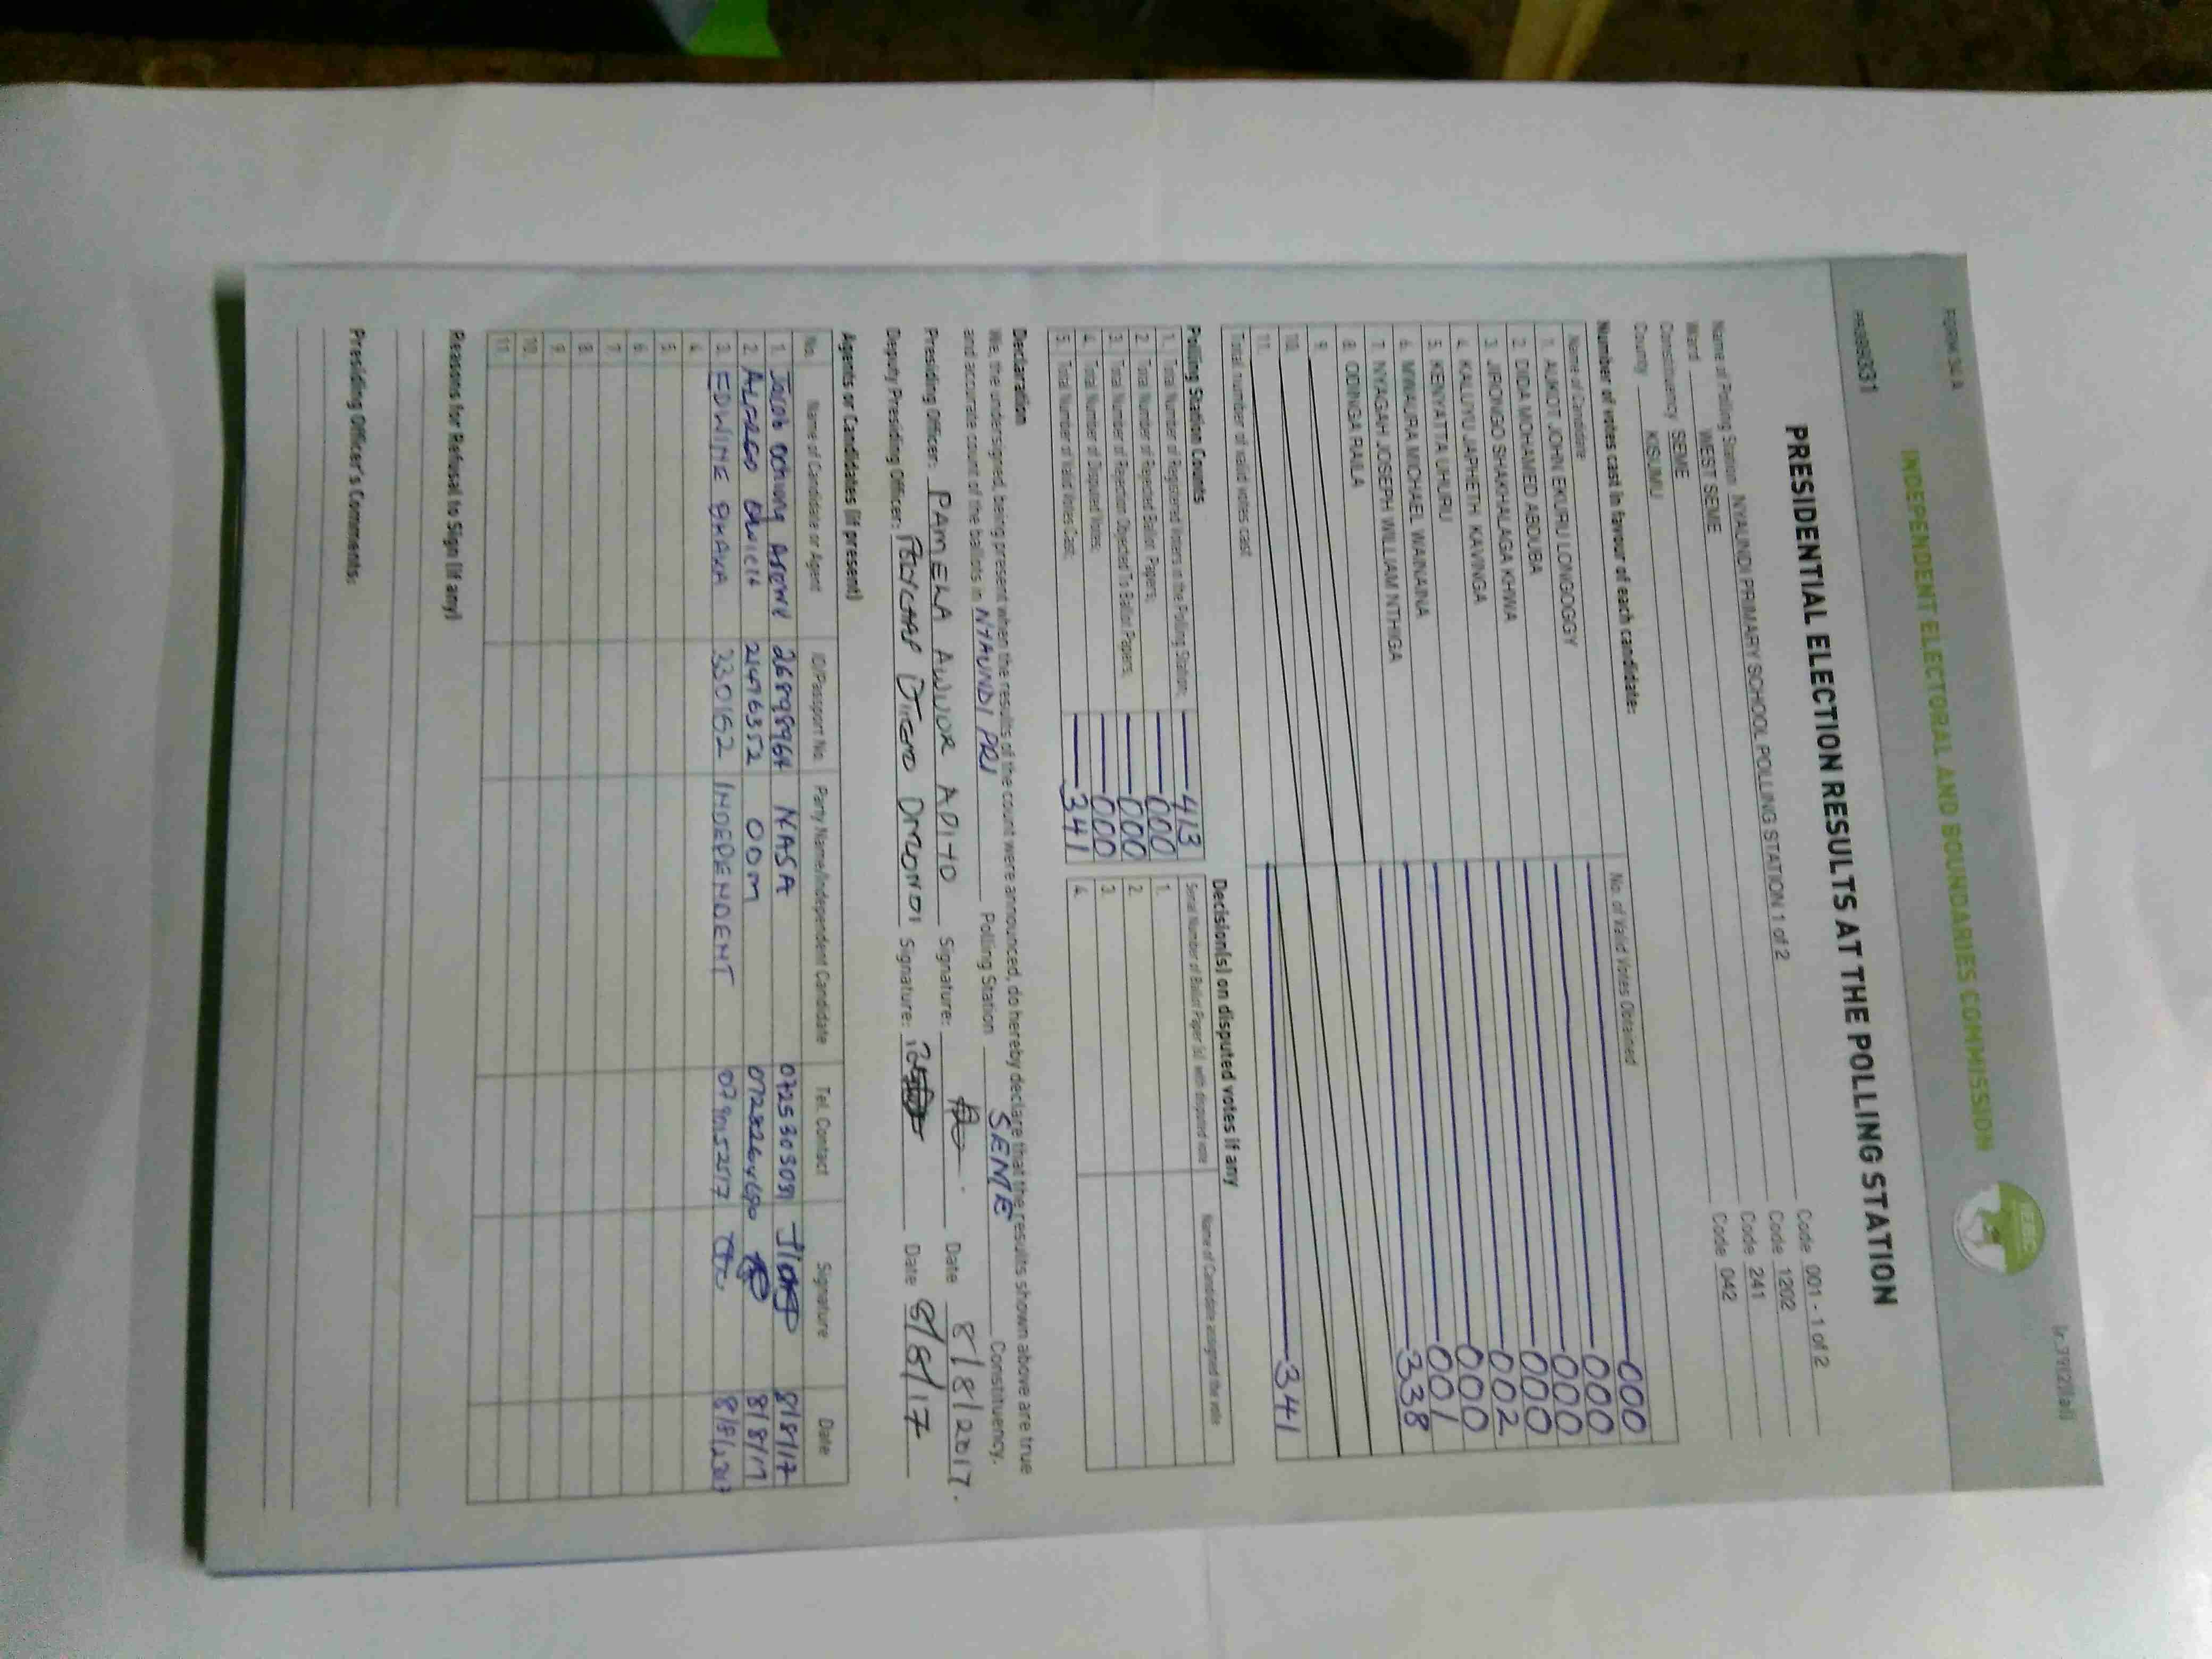 FORM 34 A
INDEPENDENT ELECTORAL AND BOUNDARIES COMMISSION
IEBC
PRESIDENTIAL ELECTION RESULTS AT THE POLLING STATION
Name of Polling Station NYAUNDI PRIMARY SCHOOL POLLING STATION 1 of 2 Code 001 - 1 of 2
Ward WEST SEME Code 1202
Constituency SEME Code 241
County KISUMU Code 042
Number of votes cast in favour of each candidate:
Name of Candidate No. of Valid Votes Obtained
1. AUKOT JOHN EKURU LONGOGGY 000
2. DIDA MOHAMED ABDUBA 000
3. JIRONGO SHAKHALAGA KHWA 000
4. KALUYU JAPHETH KAVINGA 000
5. KENYATTA UHURU 002
6. MWAURA MICHAEL WAINAINA 000
7. NYAGAH JOSEPH WILLIAM NTHIGA 001
8. ODINGA RAILA 338
9.
10.
11.
Total number of valid votes cast 341
Polling Station Counts
1. Total Number of Registered Voters in the Polling Station; 413
2. Total Number of Rejected Ballot Papers; 000
3. Total Number of Rejection Objected To Ballot Papers; 000
4. Total Number of Disputed Votes; 000
5. Total Number of Valid Votes Cast; 341
Decision(s) on disputed votes if any
Serial Number of Ballot Paper (s) with disputed vote Name of Candidate assigned the vote
1.
2.
3.
4.
Declaration
We, the undersigned, being present when the results of the count were announced, do hereby declare that the results shown above are true
and accurate count of the ballots in NYAUNDI PRI Polling Station SEME Constituency.
Presiding Officer: PAMELA AWUOR ADITO Signature: Date 8/8/2017.
Deputy Presiding Officer: Signature: Date 8/8/17
Agents or Candidates (if present)
No. Name of Candidate or Agent ID/Passport No. Party Name/Independent Candidate Tel. Contact Signature Date
1. Jacob NASA 0725303031 8/8/17
2. 21476352 ODM 8/8/17
3. EDWINE 330152 INDEPENDENT 8/8/2017
4.
5.
6.
7.
8.
9.
10.
11.
Reasons for Refusal to Sign (if any)
Presiding Officer's Comments: